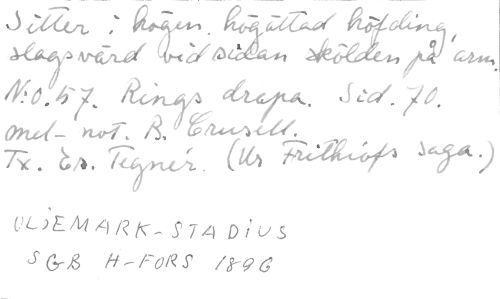 Sitter i högen, högättad höfding,
slagsvärd vid sidan skölden på arm.
No. 57. Rings drapa. Sid. 70.
mel- not. B. Crusell.
Tx. Es. Tegnér. (Ur Frithiofs saga.)
LILJEMARK-STADIUS
SGB H-FORS 1896